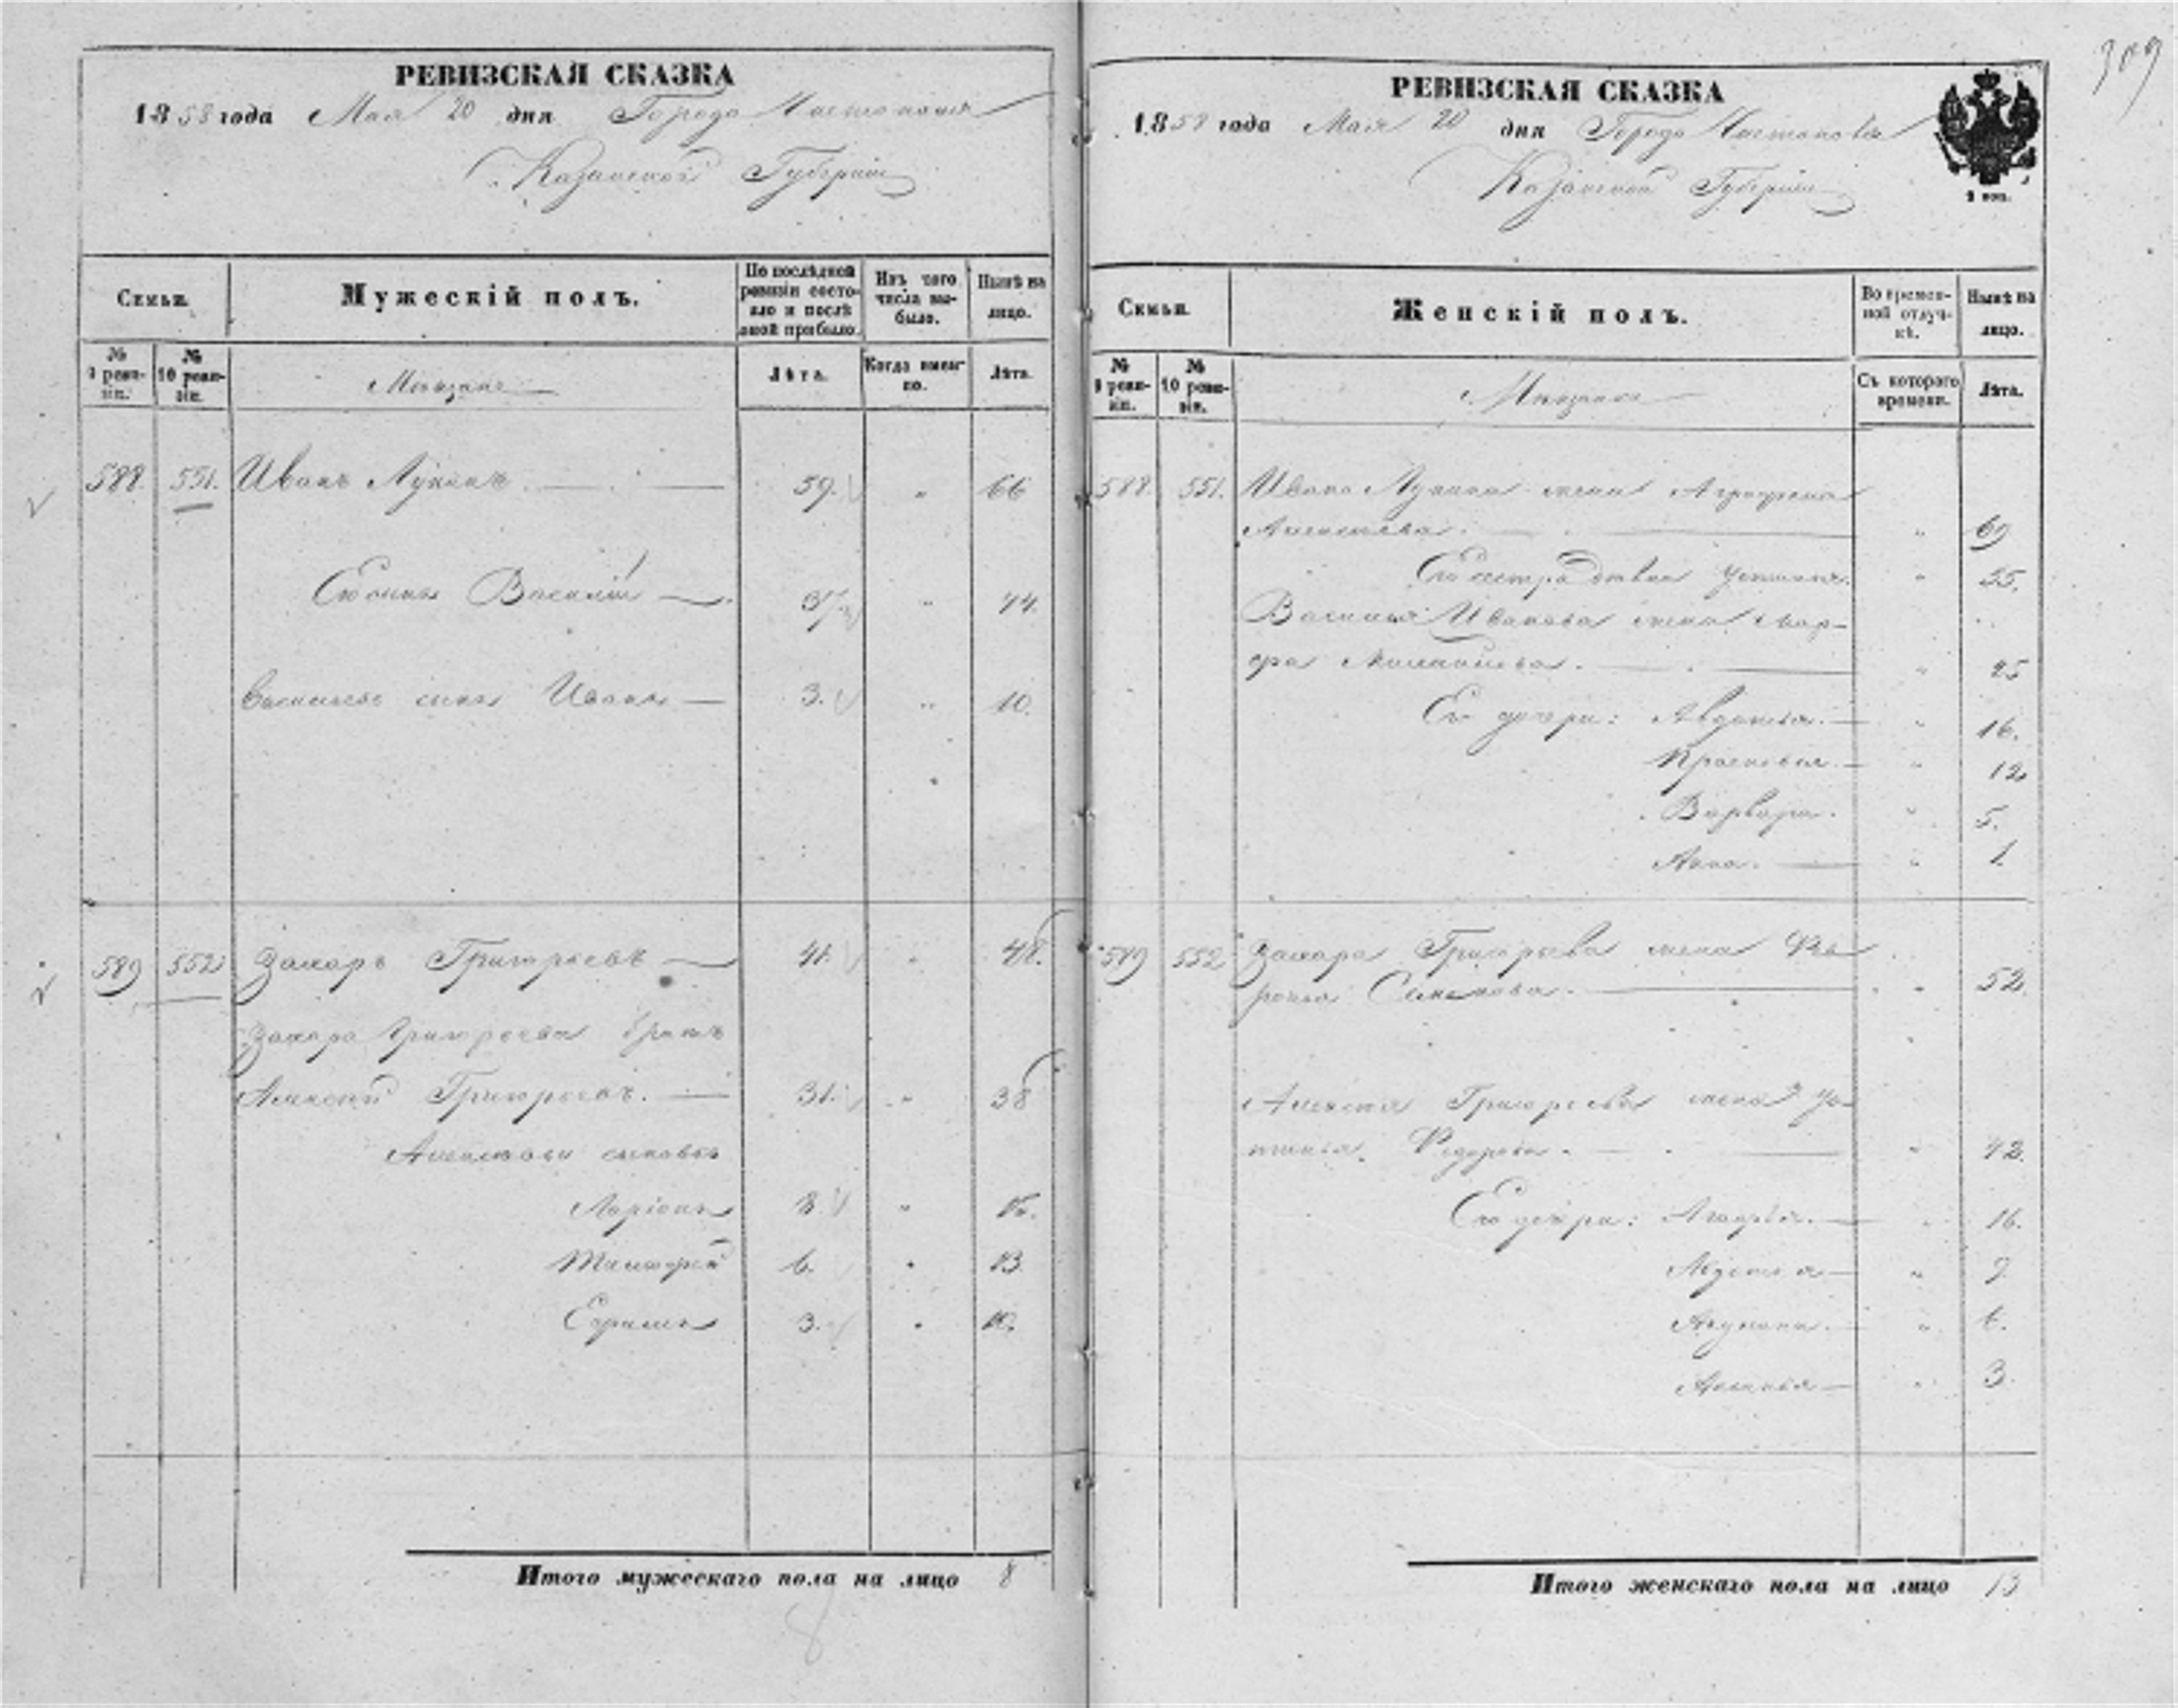 309
РЕВИЗСКАЯ СКАЗКА
1858 года Мая 20 дня Города Чистополя
Казанской Губернии
Семьи.
Мужескій полъ.
По послѣдней ревизіи состояло и послѣ оной прибыло.
Изъ того числа выбыло.
Нынѣ на лицо.
№ 9 ревизіи.
№ 10 ревизіи.
Мещане
Лѣта.
Когда именно.
Лѣта.
588. 551. Иванъ Лукинъ. 59. " 66
Его сынъ Василій 37 " 44.
Васильевъ сынъ Иванъ 3. " 10.
589 552 Захаръ Григорьевъ 41. " 48.
Захара Григорьева братъ
Алексѣй Григорьевъ. 31. " 38
Алексѣевы сыновья
Ларіонъ 8. "
Тимофей 6. " 13.
Ефримъ 3. " 10.
Итого мужескаго пола на лицо 8
8
РЕВИЗСКАЯ СКАЗКА
1858 года Мая 20 дня Города Чистополя
Казанской Губерніи
2 коп.
Семьи.
Женскій полъ.
Во временной отлучкѣ.
Нынѣ на лицо.
№ 9 ревизіи.
№ 10 ревизіи.
Мещане
Съ котораго времени.
Лѣта.
588. 551. Ивана Лукина жена Аграфена
Алексѣева. " 69
Его сестра девка Устинья. " 55.
Василья Иванова жена Мар-
фа Михайлова. " 45
Его дочери: Авдотья. " 16.
Прасковья. " 12
Варвара. " 5.
Анна. " 1.
589 552 Захара Григорьева жена Фев-
ронья Семенова. " 52.
Алексѣя Григорьева жена Ус-
тинья Федорова. " 42.
Его дочери: " 16.
Авдотья " 9.
" 6.
" 3.
Итого женскаго пола на лицо 13